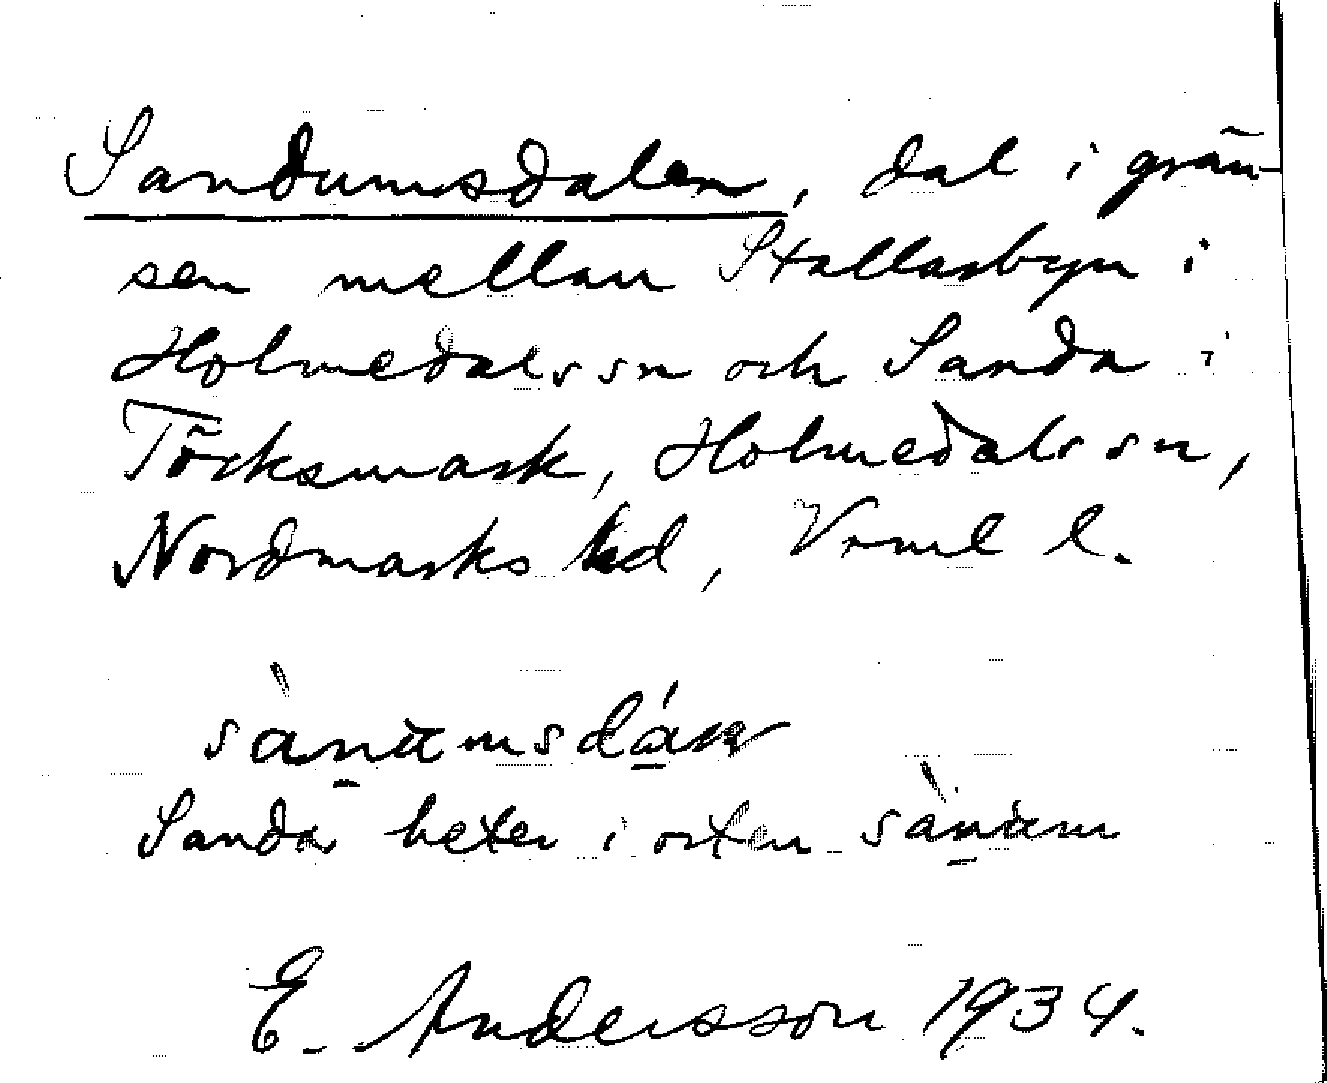 Sandumsdalen, dal i grän-
sen mellan Stallarbyn i
Holmedals sn och Sanda i
Töcksmark, Holmedals sn,
Nordmarks hd, Vrml l.
Sanda heter i orten sànum
E. Andersson 1934.